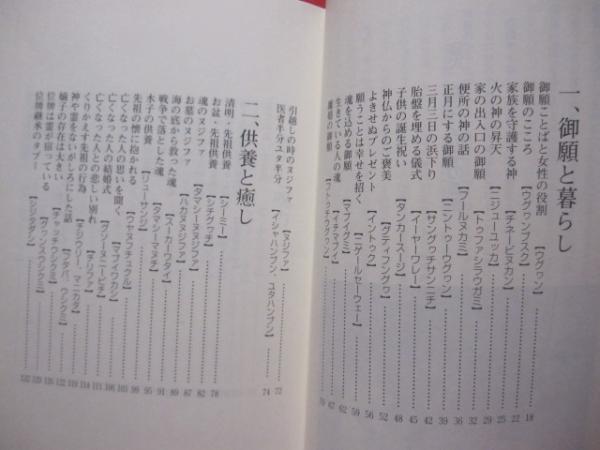 一、御願と暮らし
御願ことばと女性の役割【ウグヮン】……18
御願のこころ【ウグヮンブスク】……22
家族を守護する神【チネービヌカン】……25
火の神の昇天【ニジューユッカ】……29
家の出入口の御願【トゥファシラウガミ】……32
便所の神の話【フールヌカミ】……36
正月にする御願【ニントゥーウグヮン】……39
三月三日の浜下り【サングヮチサンニチ】……42
胎盤を埋める儀式【イーヤーワレー】……45
子供の誕生祝い【タンカースージ】……48
神仏からのご褒美【グティフングヮ】……52
よきせぬプレゼント【イントゥク】……56
願うことは幸せを招く【ニゲールセーウェー】……59
魂を込める御願【マブイグミ】……62
生きている人の魂【イチマブイ】……67
離婚の御願【フトゥチウグヮン】……70
引越しの時のヌジファ【ヌジファ】……72
医者半分ユタ半分【イシャハンブン、ユタハンブン】……74
二、供養と癒し
清明・先祖供養【シーミー】……78
お盆・先祖供養【シチグヮチ】……82
魂のヌジファ【タマシーヌヌジファ】……87
お墓のヌジファ【ハカヌヌジファ】……89
海の底から救った魂【ウーカーワタイ】……91
戦争で落とした魂【タマシーマヌチ】……95
水子の供養【リューサンジ】……99
先祖の懐に抱かれる【ウヤヌフチュクル】……103
亡くなった人の思いを聞く【マブイワカシ】……106
亡くなった人の結婚式【グソーヌニービチ】……111
亡くなった人との悲しい別れ【チリファ】……114
くりかえす先祖の行為
神や霊をないがしろにした話【フチバ、ウシクミ】
嫡子の存在は大きい【チャッチウシクミ】
位牌は霊が宿っている
位牌継承のタブー【シジタダシ】